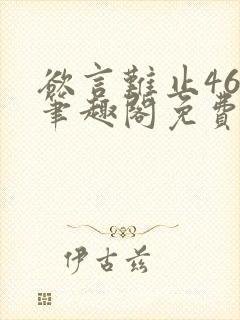 欲言難止46
筆趣閣免費
伊古茲